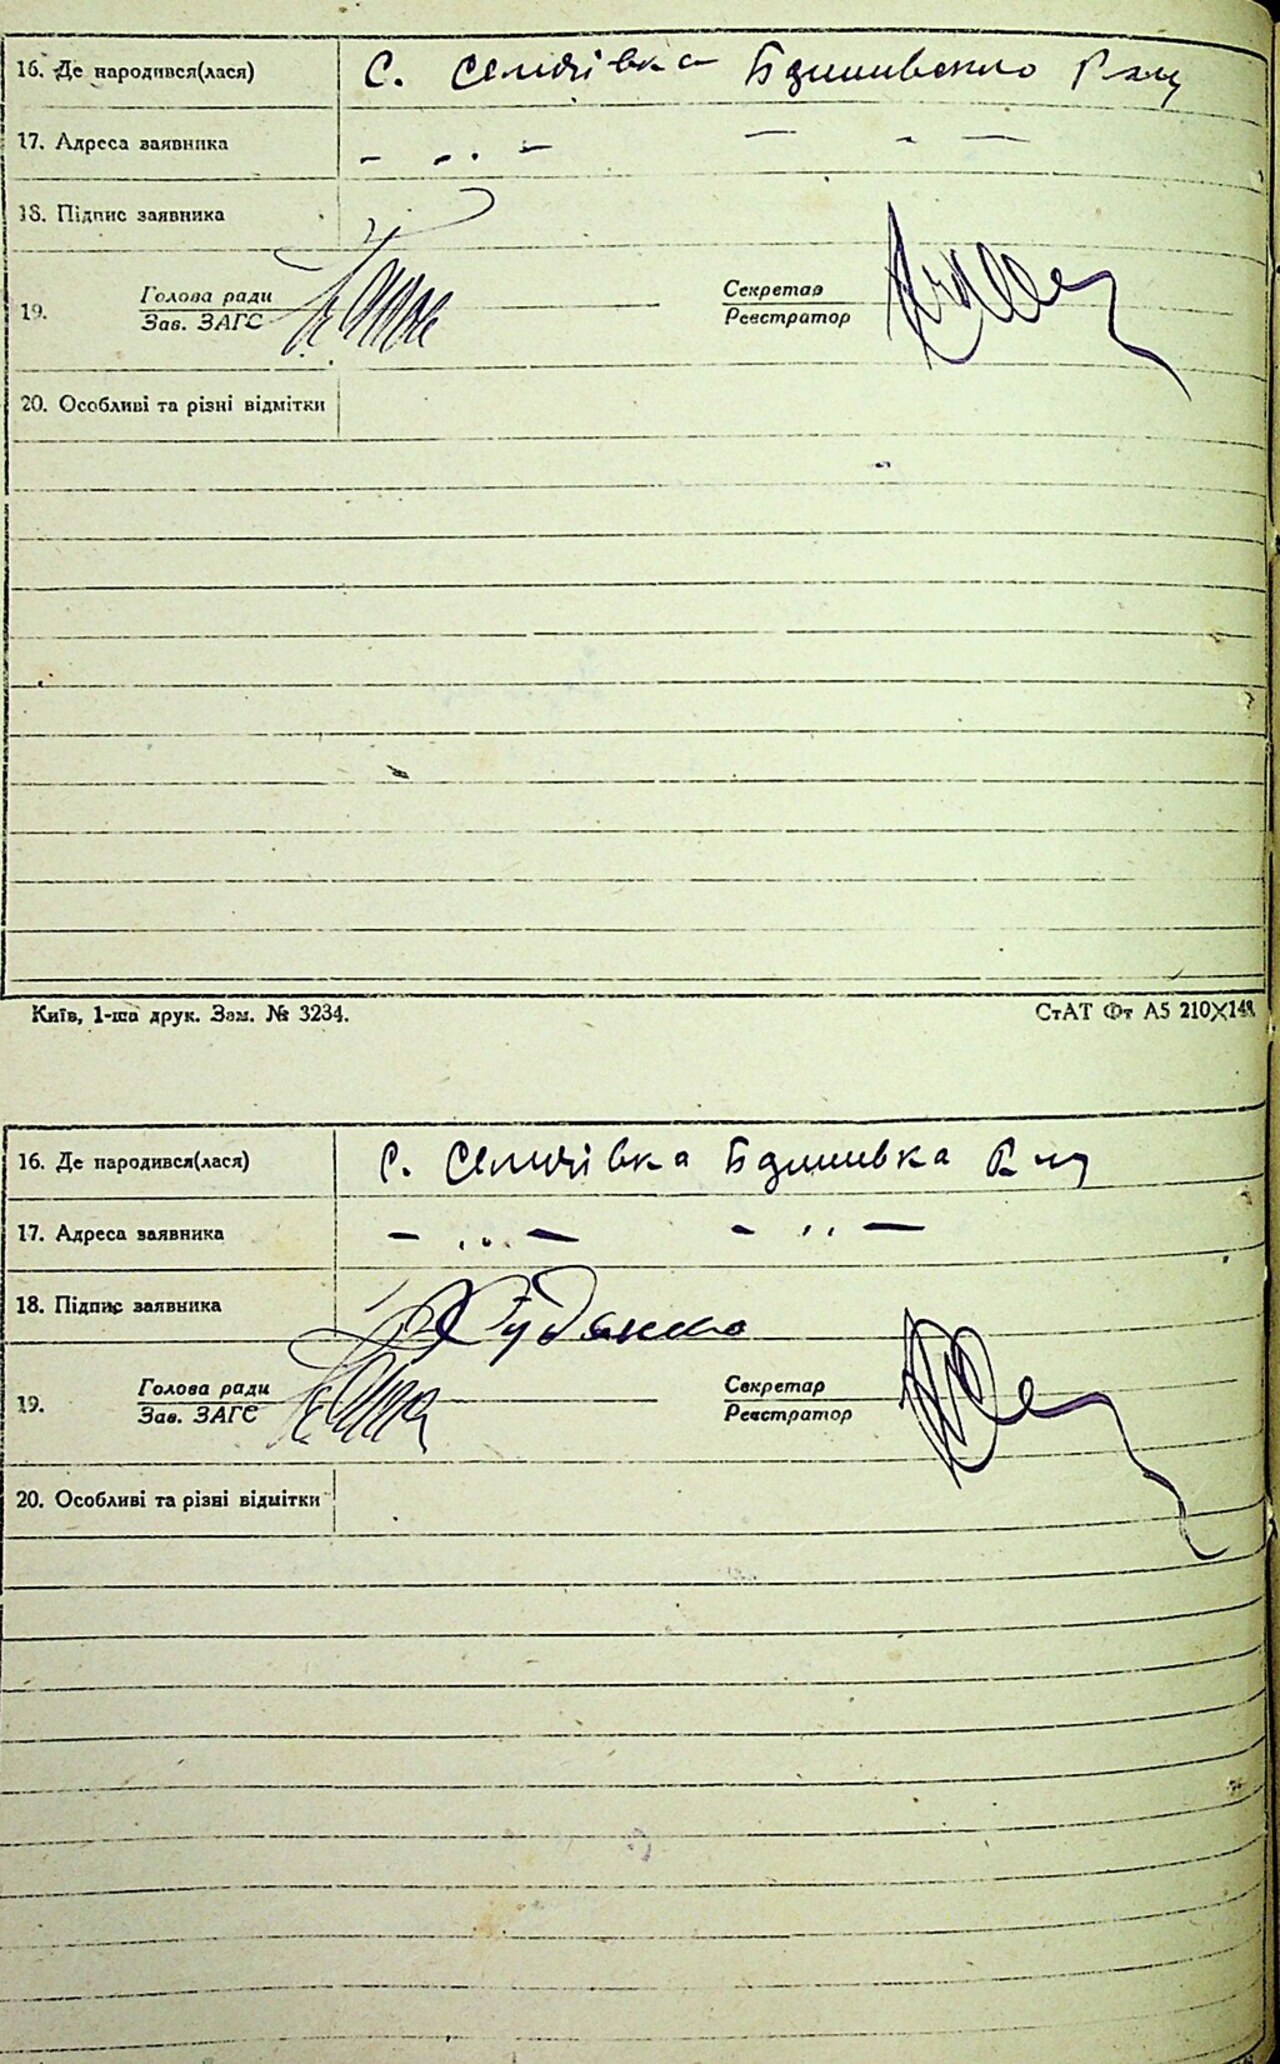 16. Де народився(лася) С. Семиівка
17. Адреса заявника - „ - - „ -
18. Підпис заявника
19. Голова ради Секретар
Зав. ЗАГС Реєстратор
20. Особливі та різні відмітки
Київ, 1-ша друк. Зам. № 3234. СтАТ Фт А5 210X148
16. Де народився(лася) С. Семиівка
17. Адреса заявника - „ - - „ -
18. Підпис заявника
19. Голова ради Секретар
Зав. ЗАГС Реєстратор
20. Особливі та різні відмітки